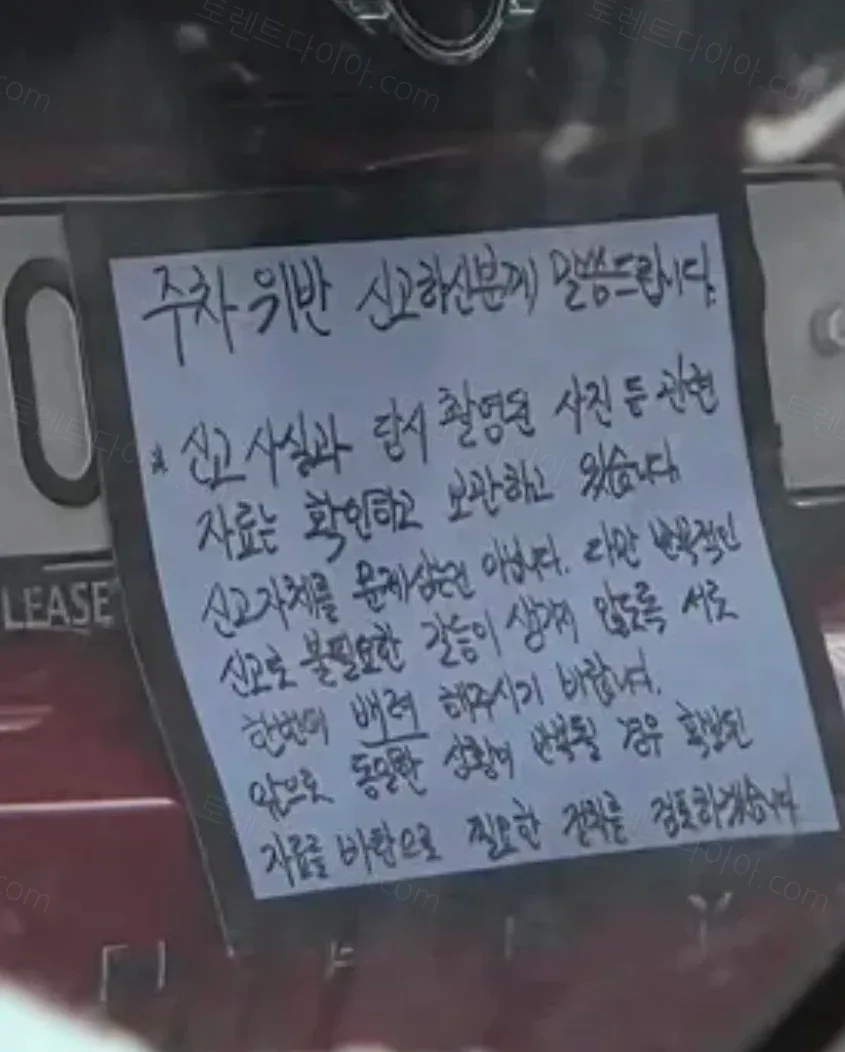 주차위반 신고하신분께 말씀드립니다.
* 신고 사실과 당시 촬영된 사진 등 관련
자료는 확인하고 보관하고 있습니다.
신고자체를 문제삼는건 아닙니다. 다만 반복적인
신고로 불필요한 갈등이 생기지 않도록 서로
한번더 배려 해주시기 바랍니다.
앞으로 동일한 상황이 반복될 경우 확보된
자료를 바탕으로 필요한 절차를 검토하겠습니다.
LEASE
토렌트다이아.com